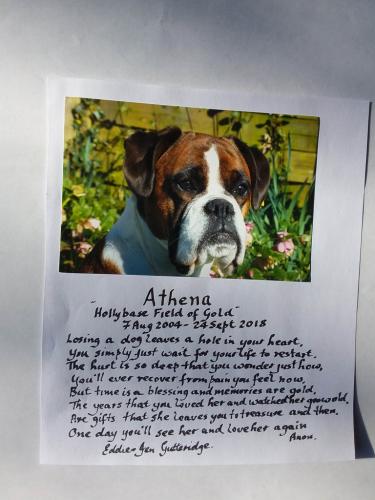 Athena
"Hollybase Field of Gold"
7 Aug 2004 - 24 Sept 2018
Losing a dog leaves a hole in your heart,
You simply just wait for your life to restart.
The hurt is so deep that you wonder just how,
You'll ever recover from pain you feel now.
But time is a blessing and memories are gold,
The years that you loved her and watched her grow old.
Are gifts that she leaves you to treasure and then,
One day you'll see her and love her again
Anon.
Eddie & Jen Gutteridge.